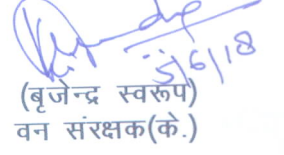 5/6/18
(बृजेन्द्र स्वरूप)
वन संरक्षक(के.)